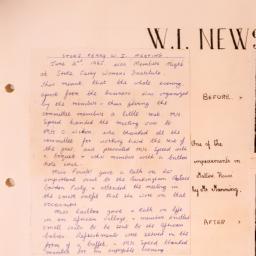 W.I. NEWS
STOKE FERRY W.I. MEETING
June 2nd 1965 was Members Night
at Stoke Ferry Womens Institute.
This meant that the whole evening
apart from the business was organised
by the members & thus giving the
committee members a little rest. Mrs
Speed handed the meeting over to
Mrs who thanked all the
committee for working hard the rest of
the year and presented Mrs Speed with
a bouquet & each member with a button
hole each.
Miss gave a talk on the
important event to the Buckingham Palace
Garden Party & attended the meeting in
the smart outfit that she wore on that
occasion.
Mrs gave a talk on life
in an African village & member knitted
small vests to be sent to the African
babies. Refreshments were served in the
form of a buffet & Mrs Speed thanked
members for an enjoyable evening
BEFORE.
One of the
improvements in
by Mr Manning.
AFTER